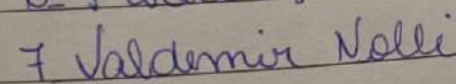 7 Valdemir Nolli